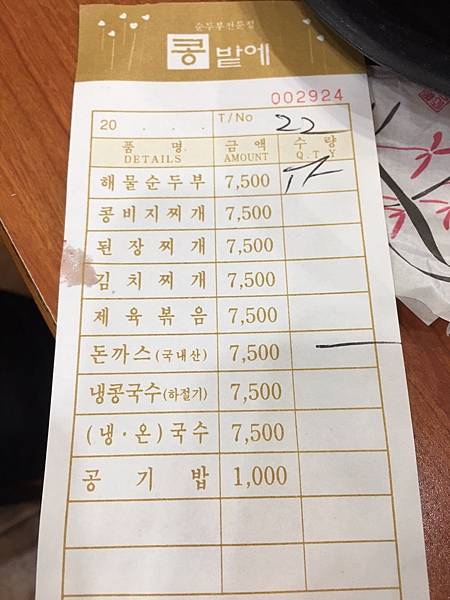 순두부전문점
콩밭에
002924
20 . . . T/No 22
품 명 금 액 수 량
DETAILS AMOUNT Q.T.Y
해물순두부 7,500
콩비지찌개 7,500
된장찌개 7,500
김치찌개 7,500
제육볶음 7,500
돈까스(국내산) 7,500 一
냉콩국수(하절기) 7,500
(냉·온)국수 7,500
공 기 밥 1,000